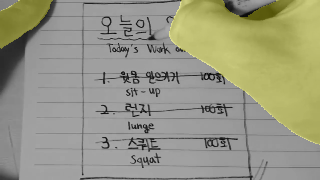 오늘의
Today's Work
1. 윗몸 일으키기 100회
sit-up
2. 런지 100회
lunge
3. 스쿼트 100회
Squat